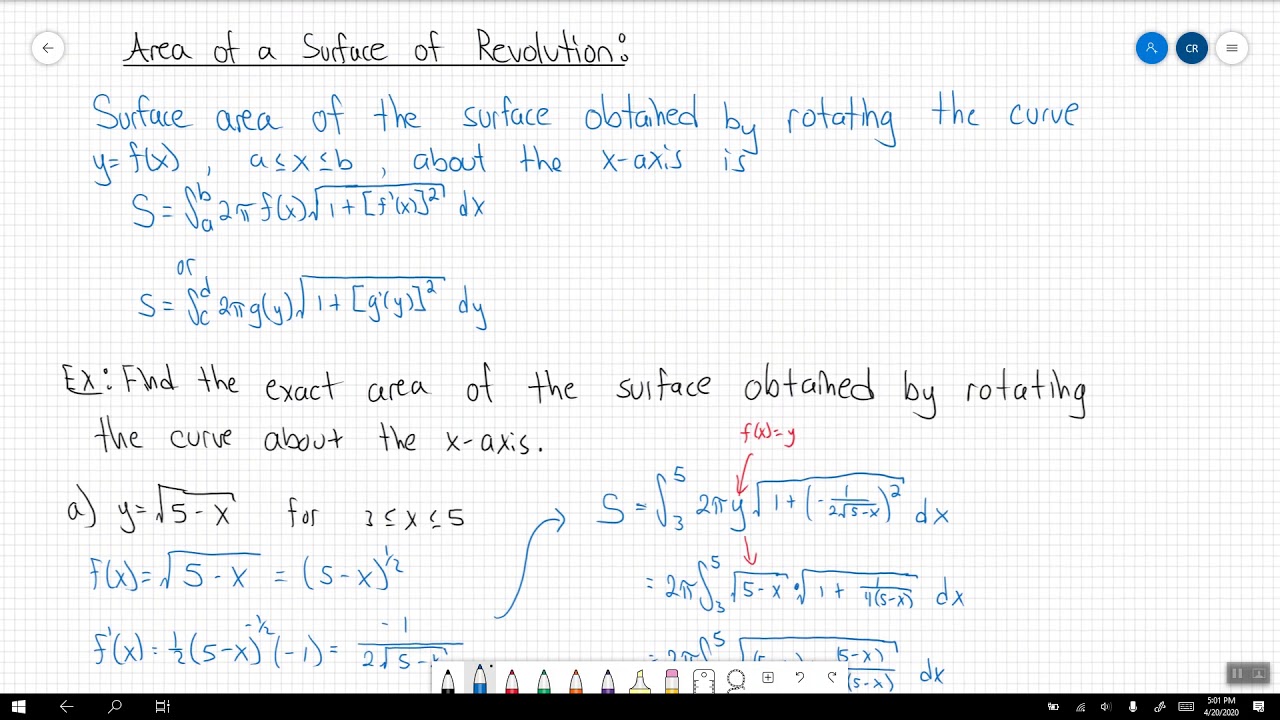 Area of a Surface of Revolution:
CR
Surface area of the surface obtained by rotating the curve
y=f(x), a≤x≤b, about the x-axis is
S=∫_a^b 2πf(x)√(1+[f'(x)]²) dx
or
S=∫_c^d 2πg(y)√(1+[g'(y)]²) dy
Ex: Find the exact area of the surface obtained by rotating
the curve about the x-axis.
f(x)=y
a) y=√(5-x) for 3≤x≤5
S=∫_3^5 2πy√(1+(-1/(2√(5-x)))²) dx
f(x)=√(5-x) = (5-x)^(1/2)
=2π∫_3^5 √(5-x)·√(1+1/(4(5-x))) dx
f'(x)=1/2(5-x)^(-1/2)(-1)= -1/(2√(5-x
=2π∫^5 (5-x) (5-x)/(5-x) dx
5:01 PM
4/20/2020